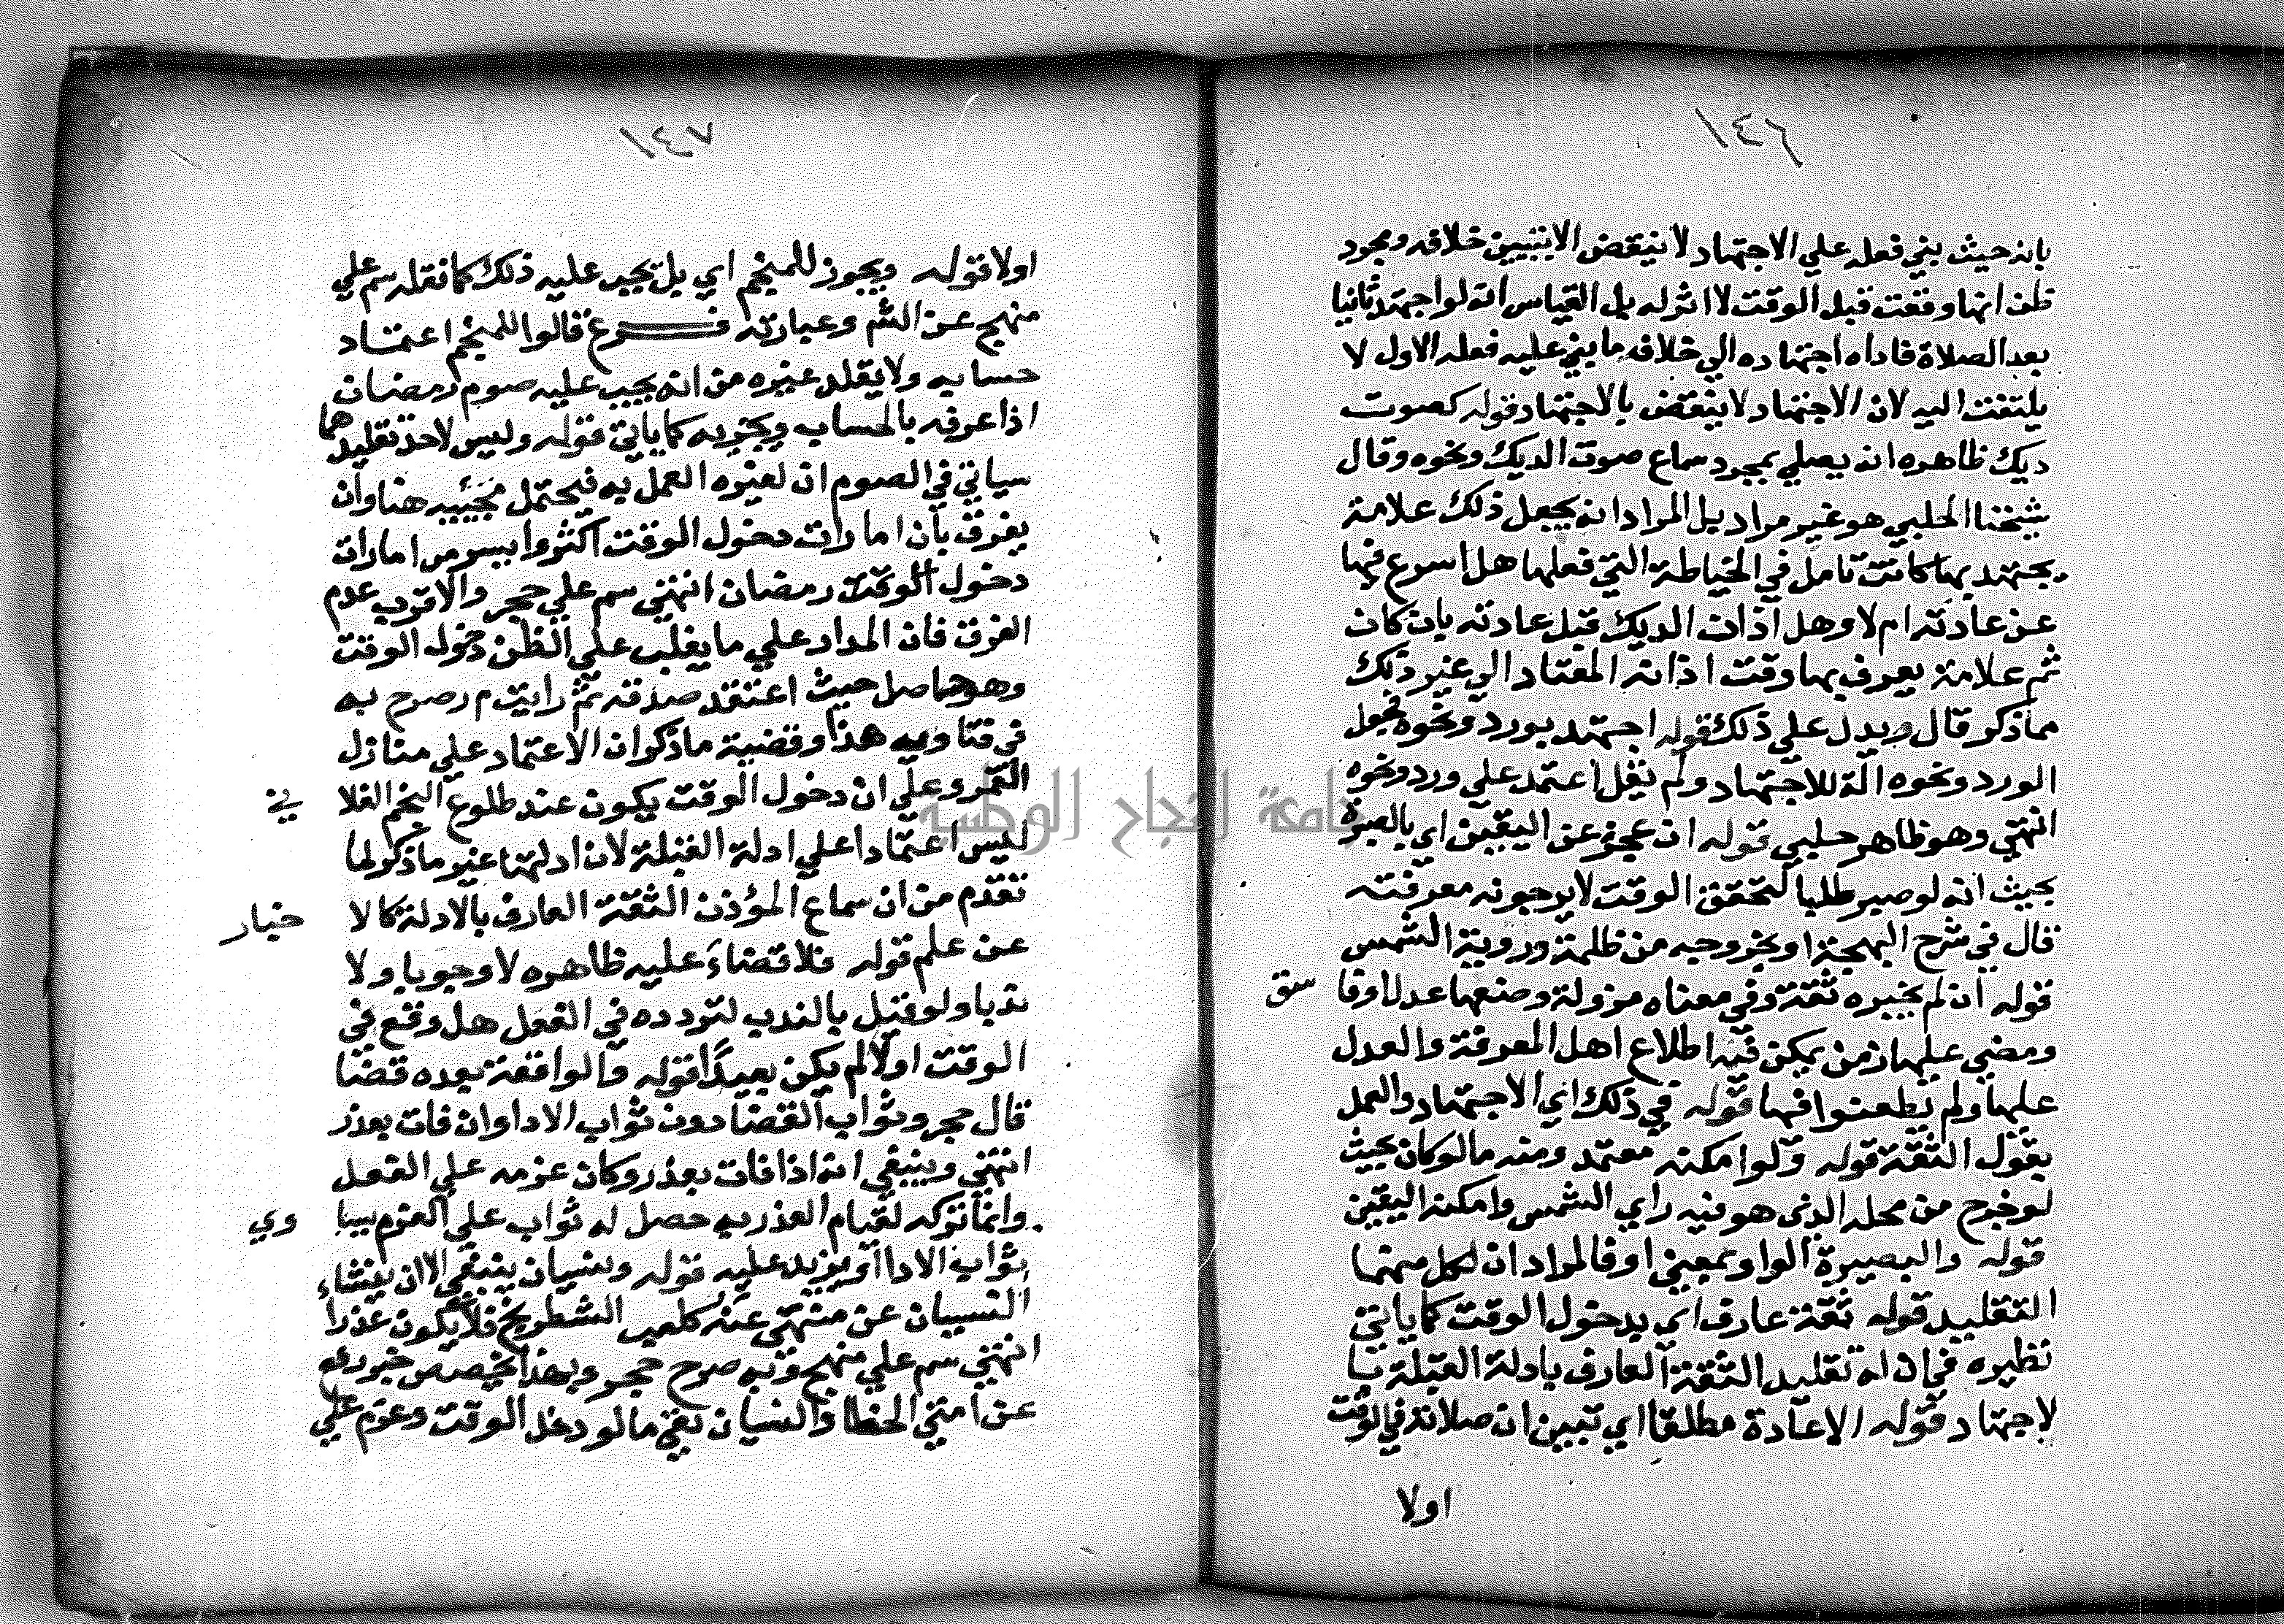 ١٤٦
بانه حيث بني فعله علي الاجتهاد لا ينقض الا بتبين خلافه ومجرد
ظن انها وقعت قبل الوقت لا اثر له بل القياس انه لو اجتهد ثانيا
بعد الصلاة فاداه اجتهاده الي خلاف ما بني عليه فعله الاول لا
يلتفت اليه لان الاجتهاد لا ينقض بالاجتهاد قوله كصوت
ديك ظاهره انه يصلي بمجرد سماع صوت الديك ونحوه وقال
شيخنا الحلبي هو غير مراد بل المراد انه يجعل ذلك علامة
يجتهد بها كانت تامل في الخياطة التي فعلها هل اسرع فيها
عن عادته ام لا وهل اذان الديك قبل عادته بان كان
ثم علامة يعرف بها وقت اذانه المعتاد الي غير ذلك
مما ذكر قال ويدل علي ذلك قوله اجتهد بورد ونحوه فجعل
الورد ونحوه الة للاجتهاد ولم يقل اعتمد علي ورد ونحوه
انتهي وهو ظاهر حلبي قوله ان عجز عن اليقين اي بالصبرة
بحيث انه لو صبر طلبا لتحقق الوقت لا يرجونه معرفته
قال في شرح البهجة او بخروجه من ظلمة ورؤية الشمس
قوله ان لم يخبره ثقة وفي معناه مزولة وضعها عدل او فا سق
ومضي عليها زمن يمكن فيه اطلاع اهل المعرفة والعدل
عليها ولم يطعنوا فيها قوله في ذلك اي الاجتهاد والعمل
بقول الثقة قوله ولو امكنه معتمد ومنه ما لو كان بحيث
لو خرج من محله الذي هو فيه راي الشمس وامكنه اليقين
قوله والبصيرة الواو بمعني او فالمراد ان لكل منهما
التقليد قوله ثقة عارف اي بدخول الوقت كما ياتي
نظيره في ان له تقليد الثقة العارف بادلة القبلة بها
لاجتهاد قوله الاعادة مطلقا اي تبين ان صلاته في الوقت
اولا
١٤٧
اولا قوله ويجوز للمنجم اي بل يجب عليه ذلك كما نقله سم علي
منهج عن الشم وعبارته فرع قالوا للمنجم اعتماد
حسابه ولا يقلد غيره من انه يجب عليه صوم رمضان
اذا عرفه بالحساب ويجزيه كما ياتي قوله وليس لاحد تقليدهما
سياتي في الصوم ان لغيره العمل به فيحتمل مجيئه هنا وان
يفرق بان امارات دخول الوقت اكثر وايسر من امارات
دخول الوقت رمضان انتهي سم علي حجر والاقرب عدم
الفرق فان المدار علي ما يغلب علي الظن دخوله الوقت
وهو حاصل حيث اعتقد صدقه ثم رايت م ر صرح به
في فتاويه هذا وقضية ما ذكر ان الاعتماد علي منازل
القمر وعلي ان دخول الوقت يكون عند طلوع النجم الفلا ني
ليس اعتمادا علي ادلة القبلة لان ادلتها غير ما ذكر لما
تقدم من ان سماع المؤذن الثقة العارف بالادلة كالا خبار
عن علم قوله فلا قضاء عليه ظاهره لا وجوبا ولا
ندبا ولو قيل بالندب لتردده في الفعل هل وقع في
الوقت اولا لم يكن بعيدا قوله والواقعة بعده قضا
قال حجر وثواب القضا دون ثواب الادا وان فات بعذر
انتهي وينبغي انه اذا فات بعذر وكان عزمه علي الفعل
وانما تركه لقيام العذر به حصل له ثواب علي العزم يسا وي
ثواب الادا او يزيد عليه قوله ونسيان ينبغي الا ان ينشاء
النسيان عن منهي عنه كلعب الشطرنج فلا يكون عذرا
انتهي سم علي منهج وبه صرح حجر وبهذا يخصص خبر رفع
عن امتي الخطا والنسيان بقي ما لو دخل الوقت وعزم علي